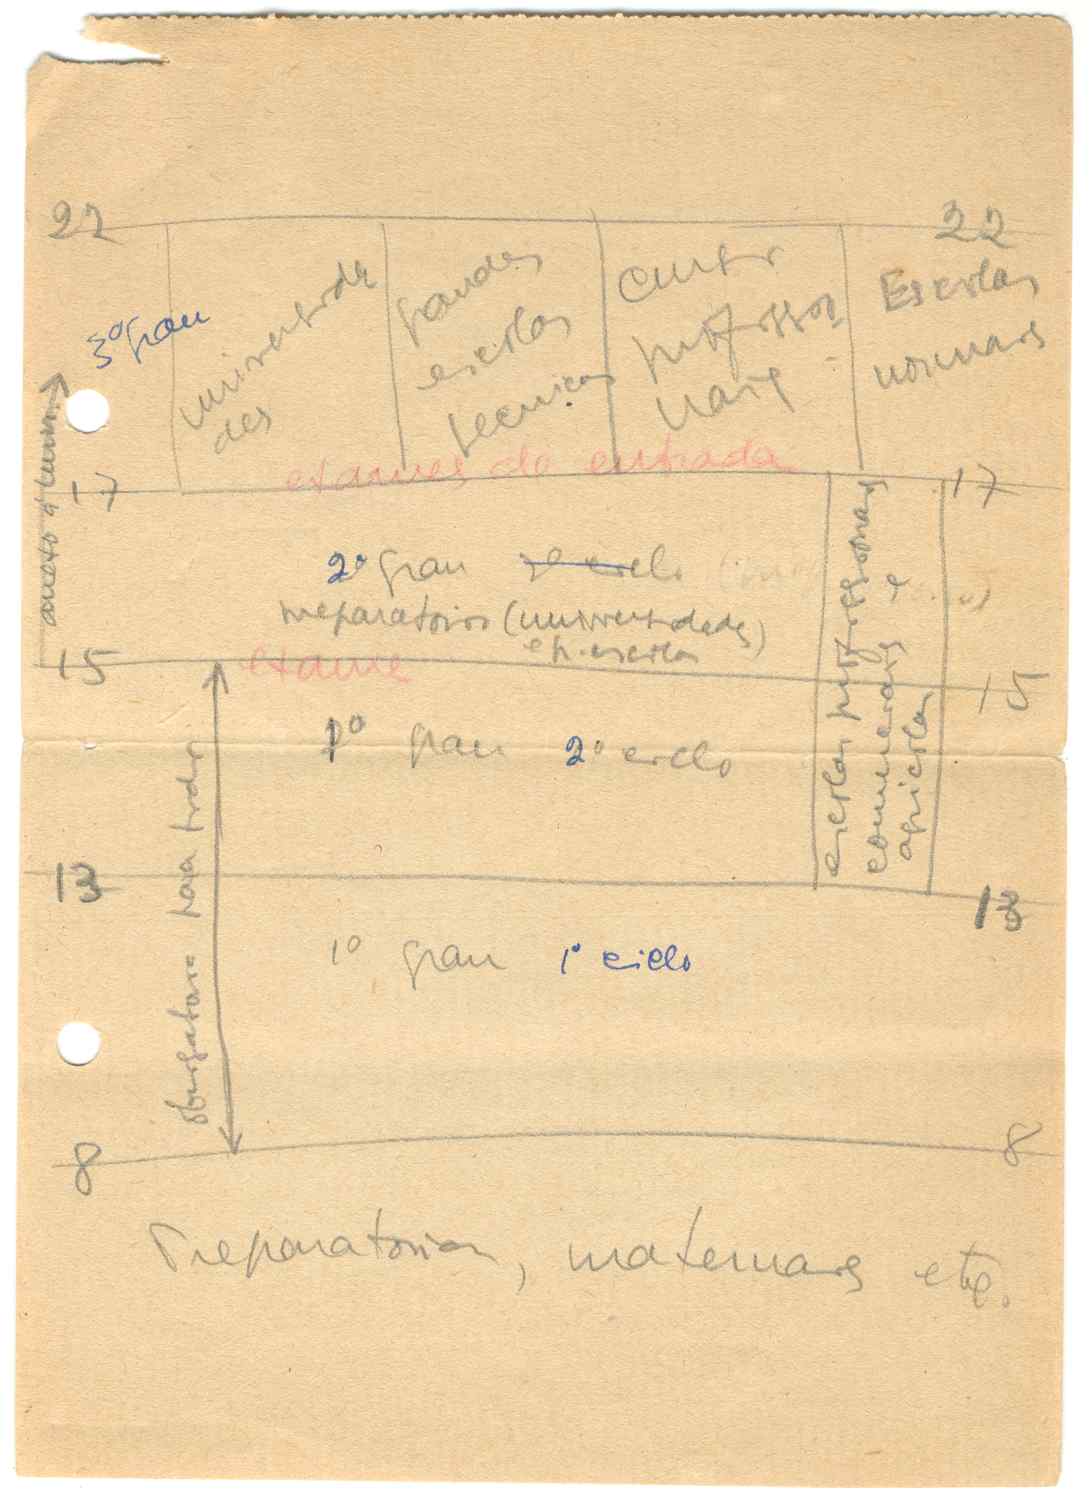 22 22
3º grau
universida
des
grandes
escolas
tecnicas
cursos
profissio
nais
Escolas
normais
exames de entrada
17 17
2º grau 2º ciclo
preparatorios (universidades)
e h. escolas
escolas profissionais
comerciais e
agricolas
15 15
exame
1º grau 2º ciclo
obrigatorio para todos
13 13
1º grau 1º ciclo
8 8
Preparatorios, maternais etc.